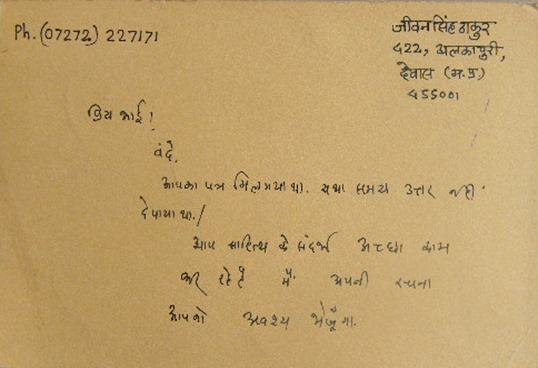 Ph. (07272) 227171
जीवनसिंह ठाकुर
422, अलकापुरी,
देवास (म.प्र.)
455001
प्रिय भाई!
वंदे,
आपका पत्र मिल गया था. यथा समय उत्तर नहीं
दे पाया था./
आप साहित्य के संदर्भ अच्छा काम
कर रहे हैं मैं अपनी रचना
आपको अवश्य भेजूँगा.